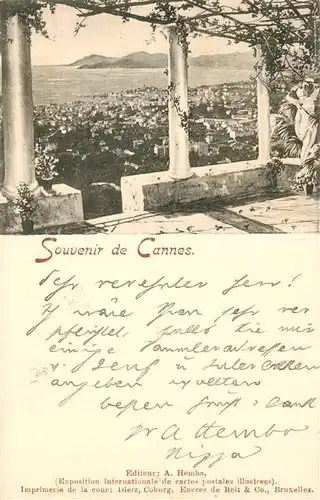 Souvenir de Cannes.
Sehr verehrter Herr!
Ich wäre Ihnen sehr ver
pflichtet, falls Sie mir
einige Sammleradressen
v. Genf u. Interlaken
angeben wollten
besten Gruß u. Dank
A Hembo
Nizza
Editeur: A. Hembo,
(Exposition internationale de cartes postales illustrees).
Imprimerie de la cour: Dietz, Coburg. Encres de Beit & Co., Bruxelles.